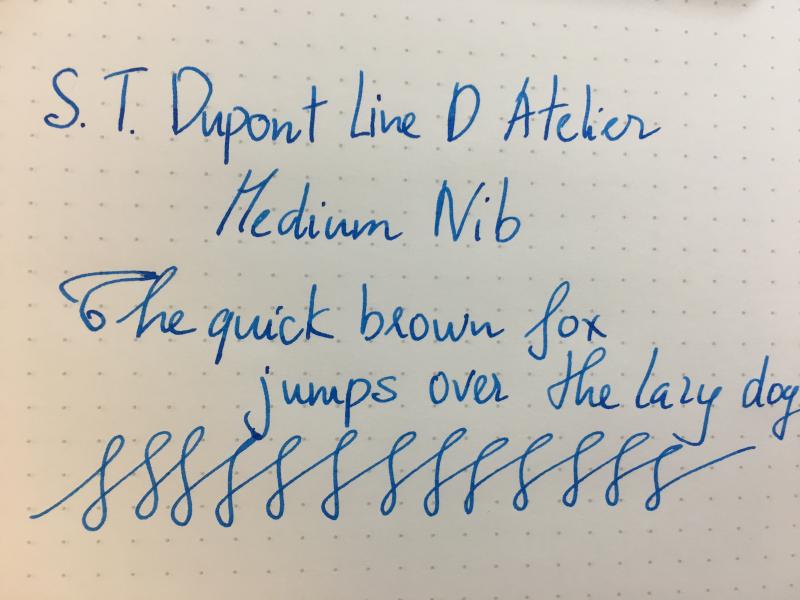 S. T. Dupont Line D Atelier
Medium Nib
The quick brown fox
jumps over the lazy dog